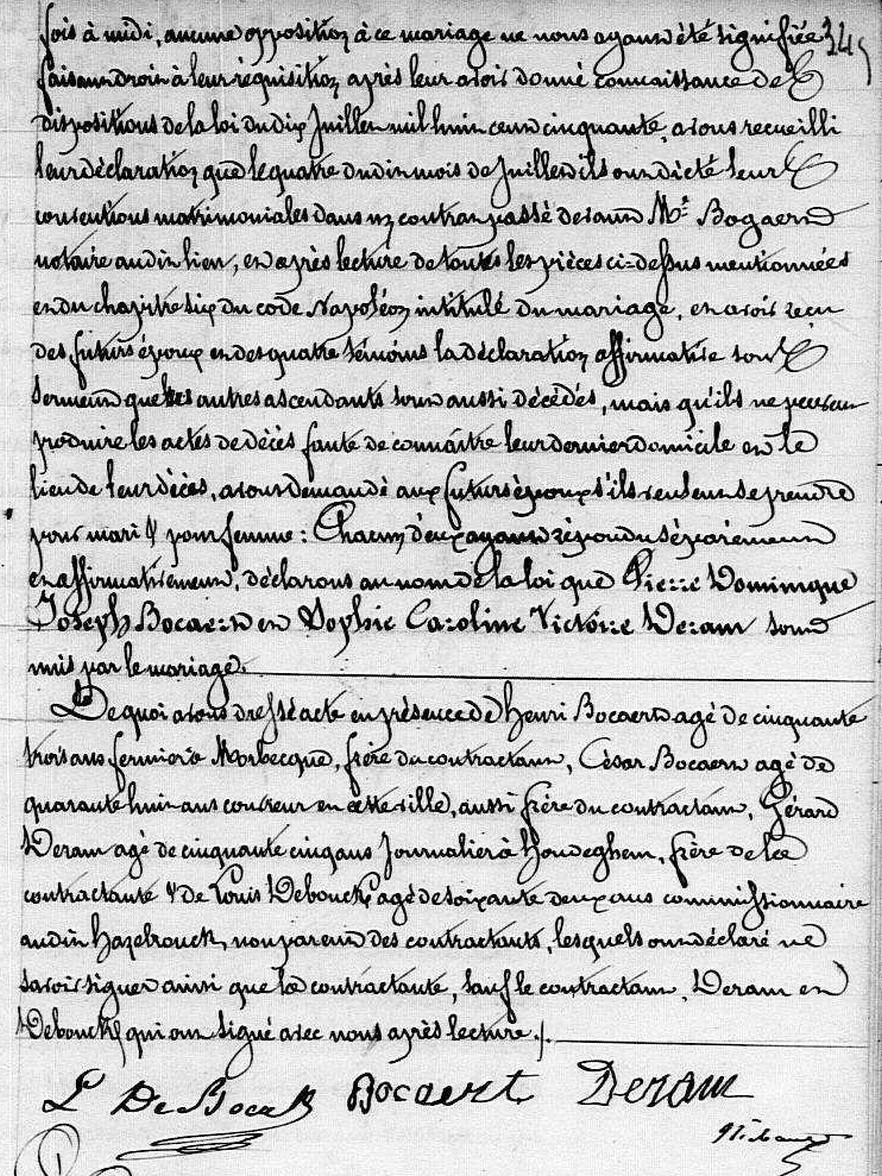 fois à midi, aucune opposition à ce mariage ne nous ayant été signifiée 345
faisant droit à leur réquisition, après leur avoir donné connaissance des
dispositions de la loi du dix Juillet mil huit cent cinquante, avons recueilli
leur déclaration que le quatre dudit mois de Juillet ils ont dicté leurs
conventions matrimoniales dans un contrat passé devant Mr. Bogaert
notaire audit lieu, et après lecture de toutes les pièces ci-dessus mentionnées
et du chapitre six du code Napoléon intitulé du mariage, et avoir reçu
des futurs époux et des quatre témoins la déclaration affirmative sous
serment que les autres ascendants sont aussi décédés, mais qu'ils ne peuvent
produire les actes de décès faute de connaître leur dernier domicile et le
lieu de leur décès, avons demandé aux futurs époux s'ils veulent se prendre
pour mari & pour femme : Chacun d'eux ayant répondu séparément
et affirmativement, déclarons au nom de la loi que Pierre Dominique
Joseph Bocaert et Sophie Caroline Victoire Deram sont
unis par le mariage.
De quoi avons dressé acte en présence de Henri Bocaert agé de cinquante
trois ans fermier à Morbecque, frère du contractant, César Bocaert agé de
quarante huit ans couvreur en cette ville, aussi frère du contractant, Gérard
Deram agé de cinquante cinq ans Journalier à Hondeghem, frère de la
contractante & de Louis Debouck agé de soixante deux ans commissionnaire
audit Hazebrouck, non parent des contractants, lesquels ont déclaré ne
savoir signer ainsi que la contractante, sauf le contractant, Deram et
Debouck qui ont signé avec nous après lecture ./.
L De Bouck Bocaert Deram